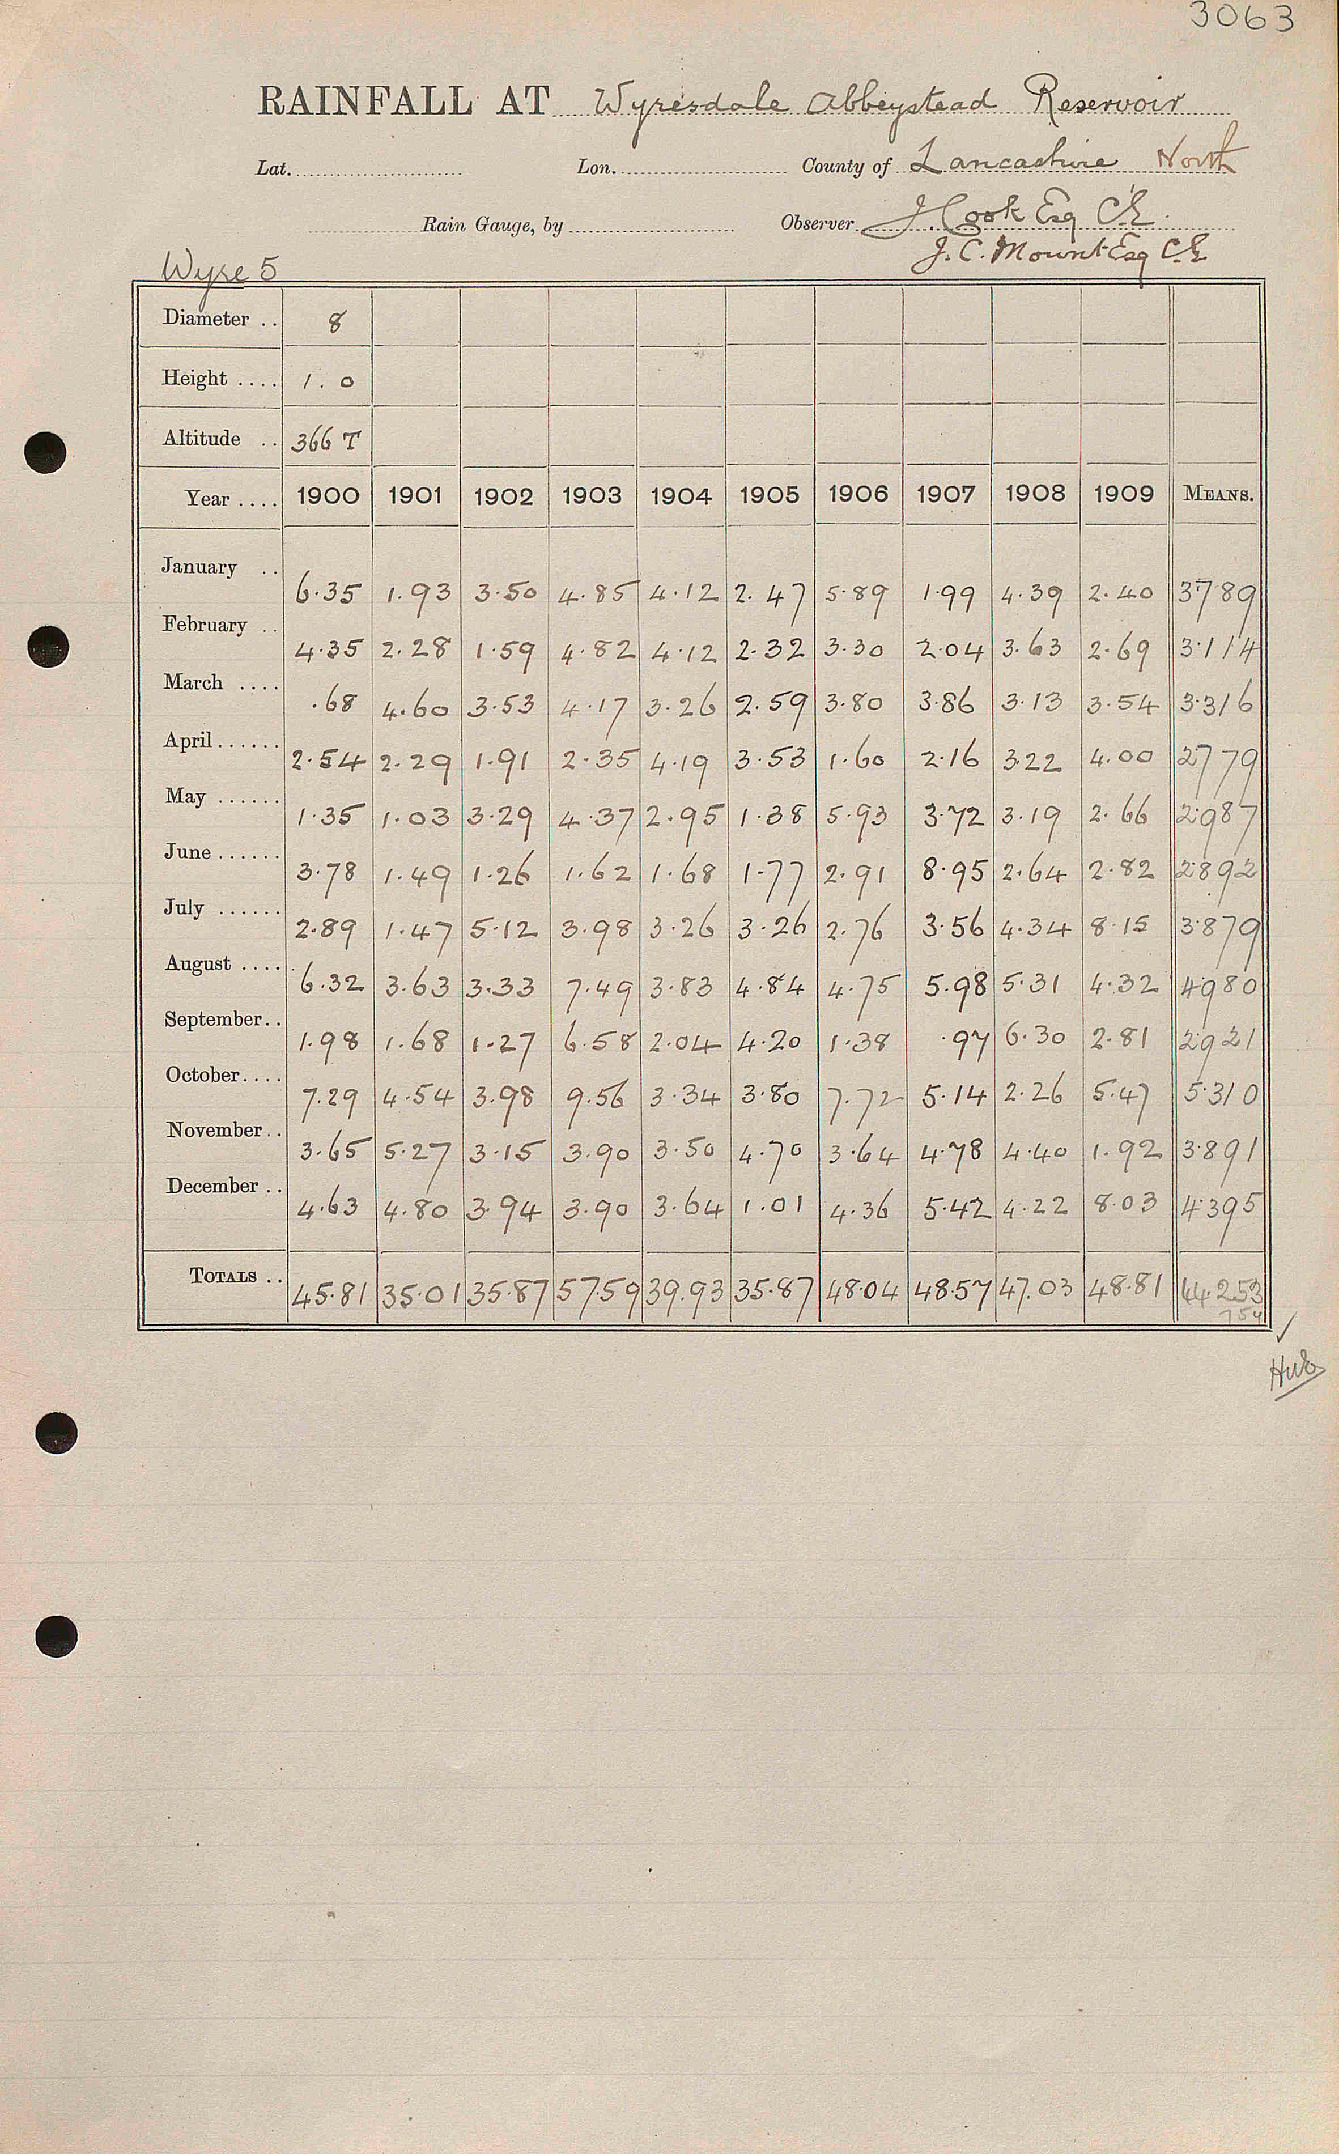 3063
RAINFALL AT Wyresdale Abbeystead Reservoir
Lat. Lon. County of Lancashire North
Rain Gauge, by Observer J. Cook Esq C.E.
J. C. Mount Esq C.E
Wyre 5
Diameter .. 8
Height .... 1.0
Altitude .. 366 T
Year .... 1900 1901 1902 1903 1904 1905 1906 1907 1908 1909 MEANS.
January .. 6.35 1.93 3.50 4.85 4.12 2.47 5.89 1.99 4.39 2.40 3789
February .. 4.35 2.28 1.59 4.82 4.12 2.32 3.30 2.04 3.63 2.69 3.114
March .... .68 4.60 3.53 4.17 3.26 2.59 3.80 3.86 3.13 3.54 3.316
April...... 2.54 2.29 1.91 2.35 4.19 3.53 1.60 2.16 3.22 4.00 2779
May ...... 1.35 1.03 3.29 4.37 2.95 1.38 5.93 3.72 3.19 2.66 2.987
June...... 3.78 1.49 1.26 1.62 1.68 1.77 2.91 8.95 2.64 2.82 2892
July ...... 2.89 1.47 5.12 3.98 3.26 3.26 2.76 3.56 4.34 8.15 3.879
August .... 6.32 3.63 3.33 7.49 3.83 4.84 4.75 5.98 5.31 4.32 4980
September.. 1.98 1.68 1.27 6.58 2.04 4.20 1.38 .97 6.30 2.81 2921
October.... 7.29 4.54 3.98 9.56 3.34 3.80 7.72 5.14 2.26 5.47 5.310
November.. 3.65 5.27 3.15 3.90 3.50 4.70 3.64 4.78 4.40 1.92 3.891
December .. 4.63 4.80 3.94 3.90 3.64 1.01 4.36 5.42 4.22 8.03 4.395
TOTALS .. 45.81 35.01 35.87 57.59 39.93 35.87 48.04 48.57 47.03 48.81 44.253